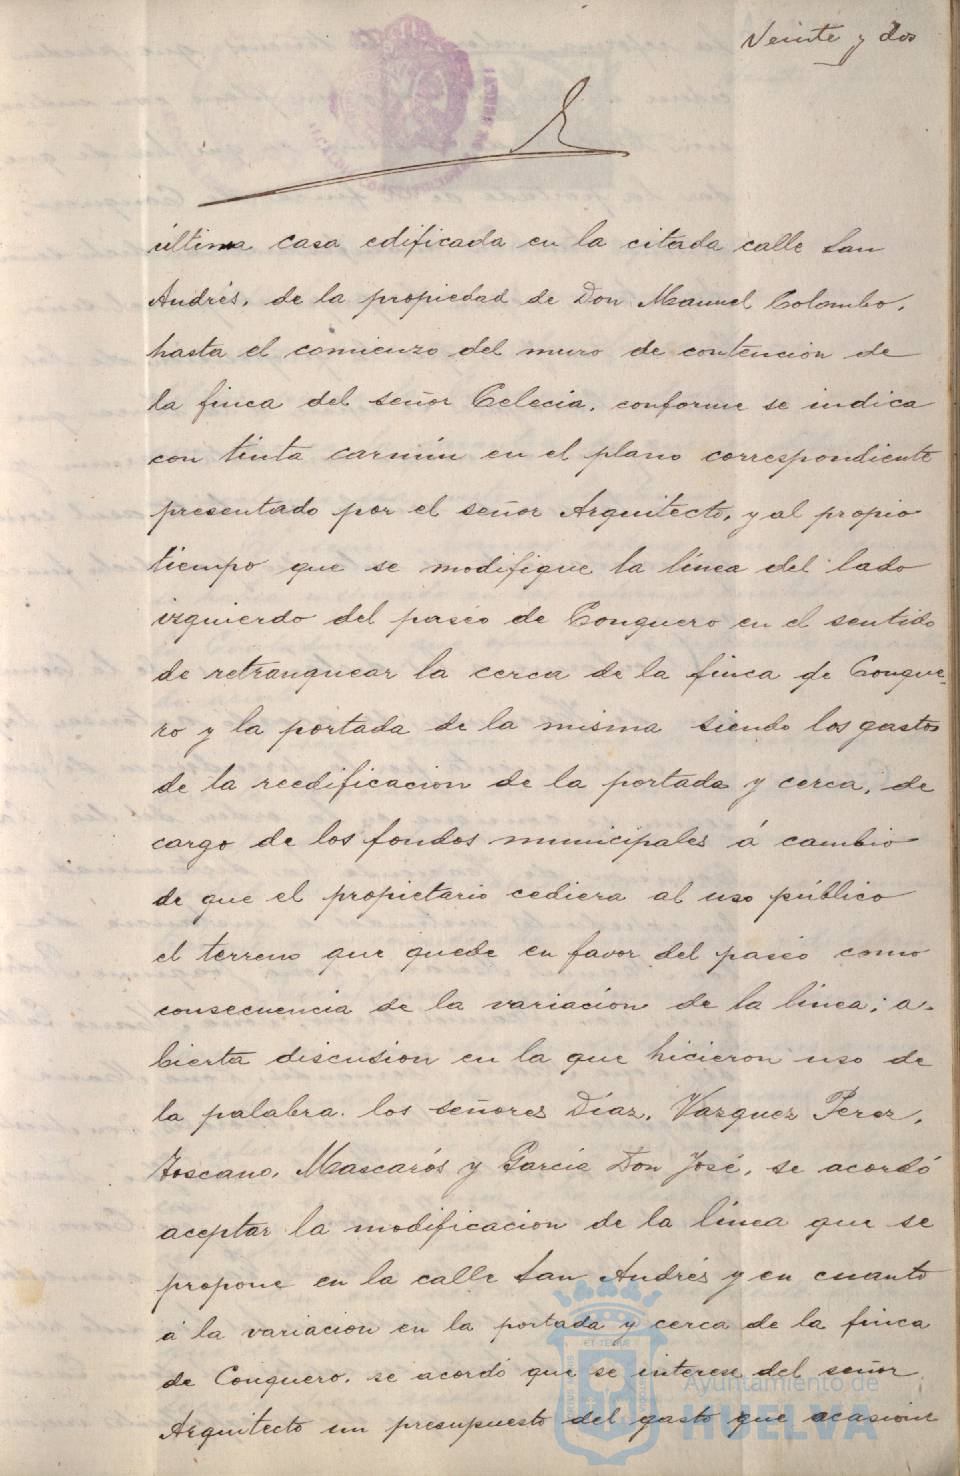 Veinte y dos
última casa edificada en la citada calle San
Andrés, de la propiedad de Don Manuel Colombo,
hasta el comienzo del muro de contención de
la finca del señor Celecia, conforme se indica
con tinta carmín en el plano correspondiente
presentado por el señor Arquitecto, y al propio
tiempo que se modifique la línea del lado
izquierdo del paseo de Conquero en el sentido
de retranquear la cerca de la finca de Conque-
ro y la portada de la misma siendo los gastos
de la reedificacion de la portada y cerca, de
cargo de los fondos municipales á cambio
de que el propietario cediera al uso público
el terreno que quede en favor del paseo como
consecuencia de la variacion de la línea; a-
bierta discusion en la que hicieron uso de
la palabra los señores Díaz, Vazquez Perez,
Toscano, Mascarós y García Don José, se acordó
aceptar la modificacion de la línea que se
propone en la calle San Andrés y en cuanto
á la variacion en la portada y cerca de la finca
de Conquero, se acordó que se interese del señor
Arquitecto un presupuesto del gasto que acasione
Ayuntamiento de
HUELVA